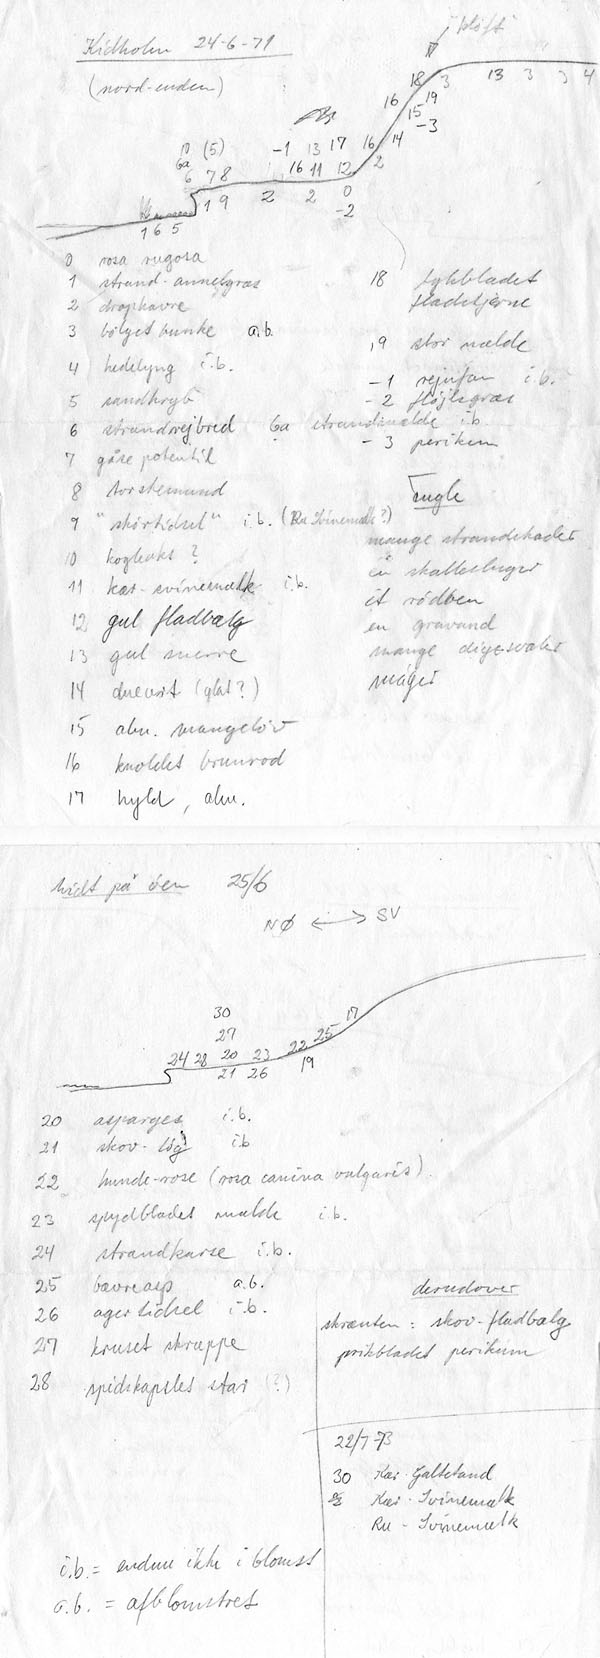 i kløft
Kidholm 24-6-71
(nord-enden)
18 3 13 3 3 4
16 19
15
-3
10 (5) -1 13 17 16 14
6a
6 7 8 16 11 12 2
1 9 2 2 0
-2
1 6 5
0 rosa rugosa
1 strand-annelgræs
2 draphavre
3 bølget bunke a.b.
4 hedelyng i.b.
5 sandkryb
6 strandvejbred 6a strandmælde i.b.
7 gåse potentil
8 torskemund
9 "skørtidsel" i.b. (Ru Svinemælk?)
10 kogleaks ?
11 kær-svinemælk i.b.
12 gul fladbælg
13 gul snerre
14 dueurt (glat?)
15 alm. mangeløv
16 knoldet brunrod
17 hyld, alm.
18 tykbladet
fladstjerne
19 stor nælde
-1 rejnfan i.b.
-2 fløjlsgræs
-3 perikum
Fugle
mange strandskader
én skallesluger
ét rødben
en gravand
mange digesvaler
måger
Midt på øen 25/6
NØ ⟷ SV
30 17
27 25
24 28 20 23 22
21 26 19
20 asparges i.b.
21 skov-løg i.b
22 hunde-rose (rosa canina vulgaris)
23 spydbladet mælde i.b.
24 strandkarse i.b.
25 bævreasp a.b.
26 agertidsel i.b.
27 kruset skræppe
28 spidskapslet star (?)
derudover
skrænten: skov-fladbælg
prikbladet perikum
22/7-73
30 Kær-Galtetand
Kær-Svinemælk
Ru-Svinemælk
i.b. = endnu ikke i blomst
a.b. = afblomstret